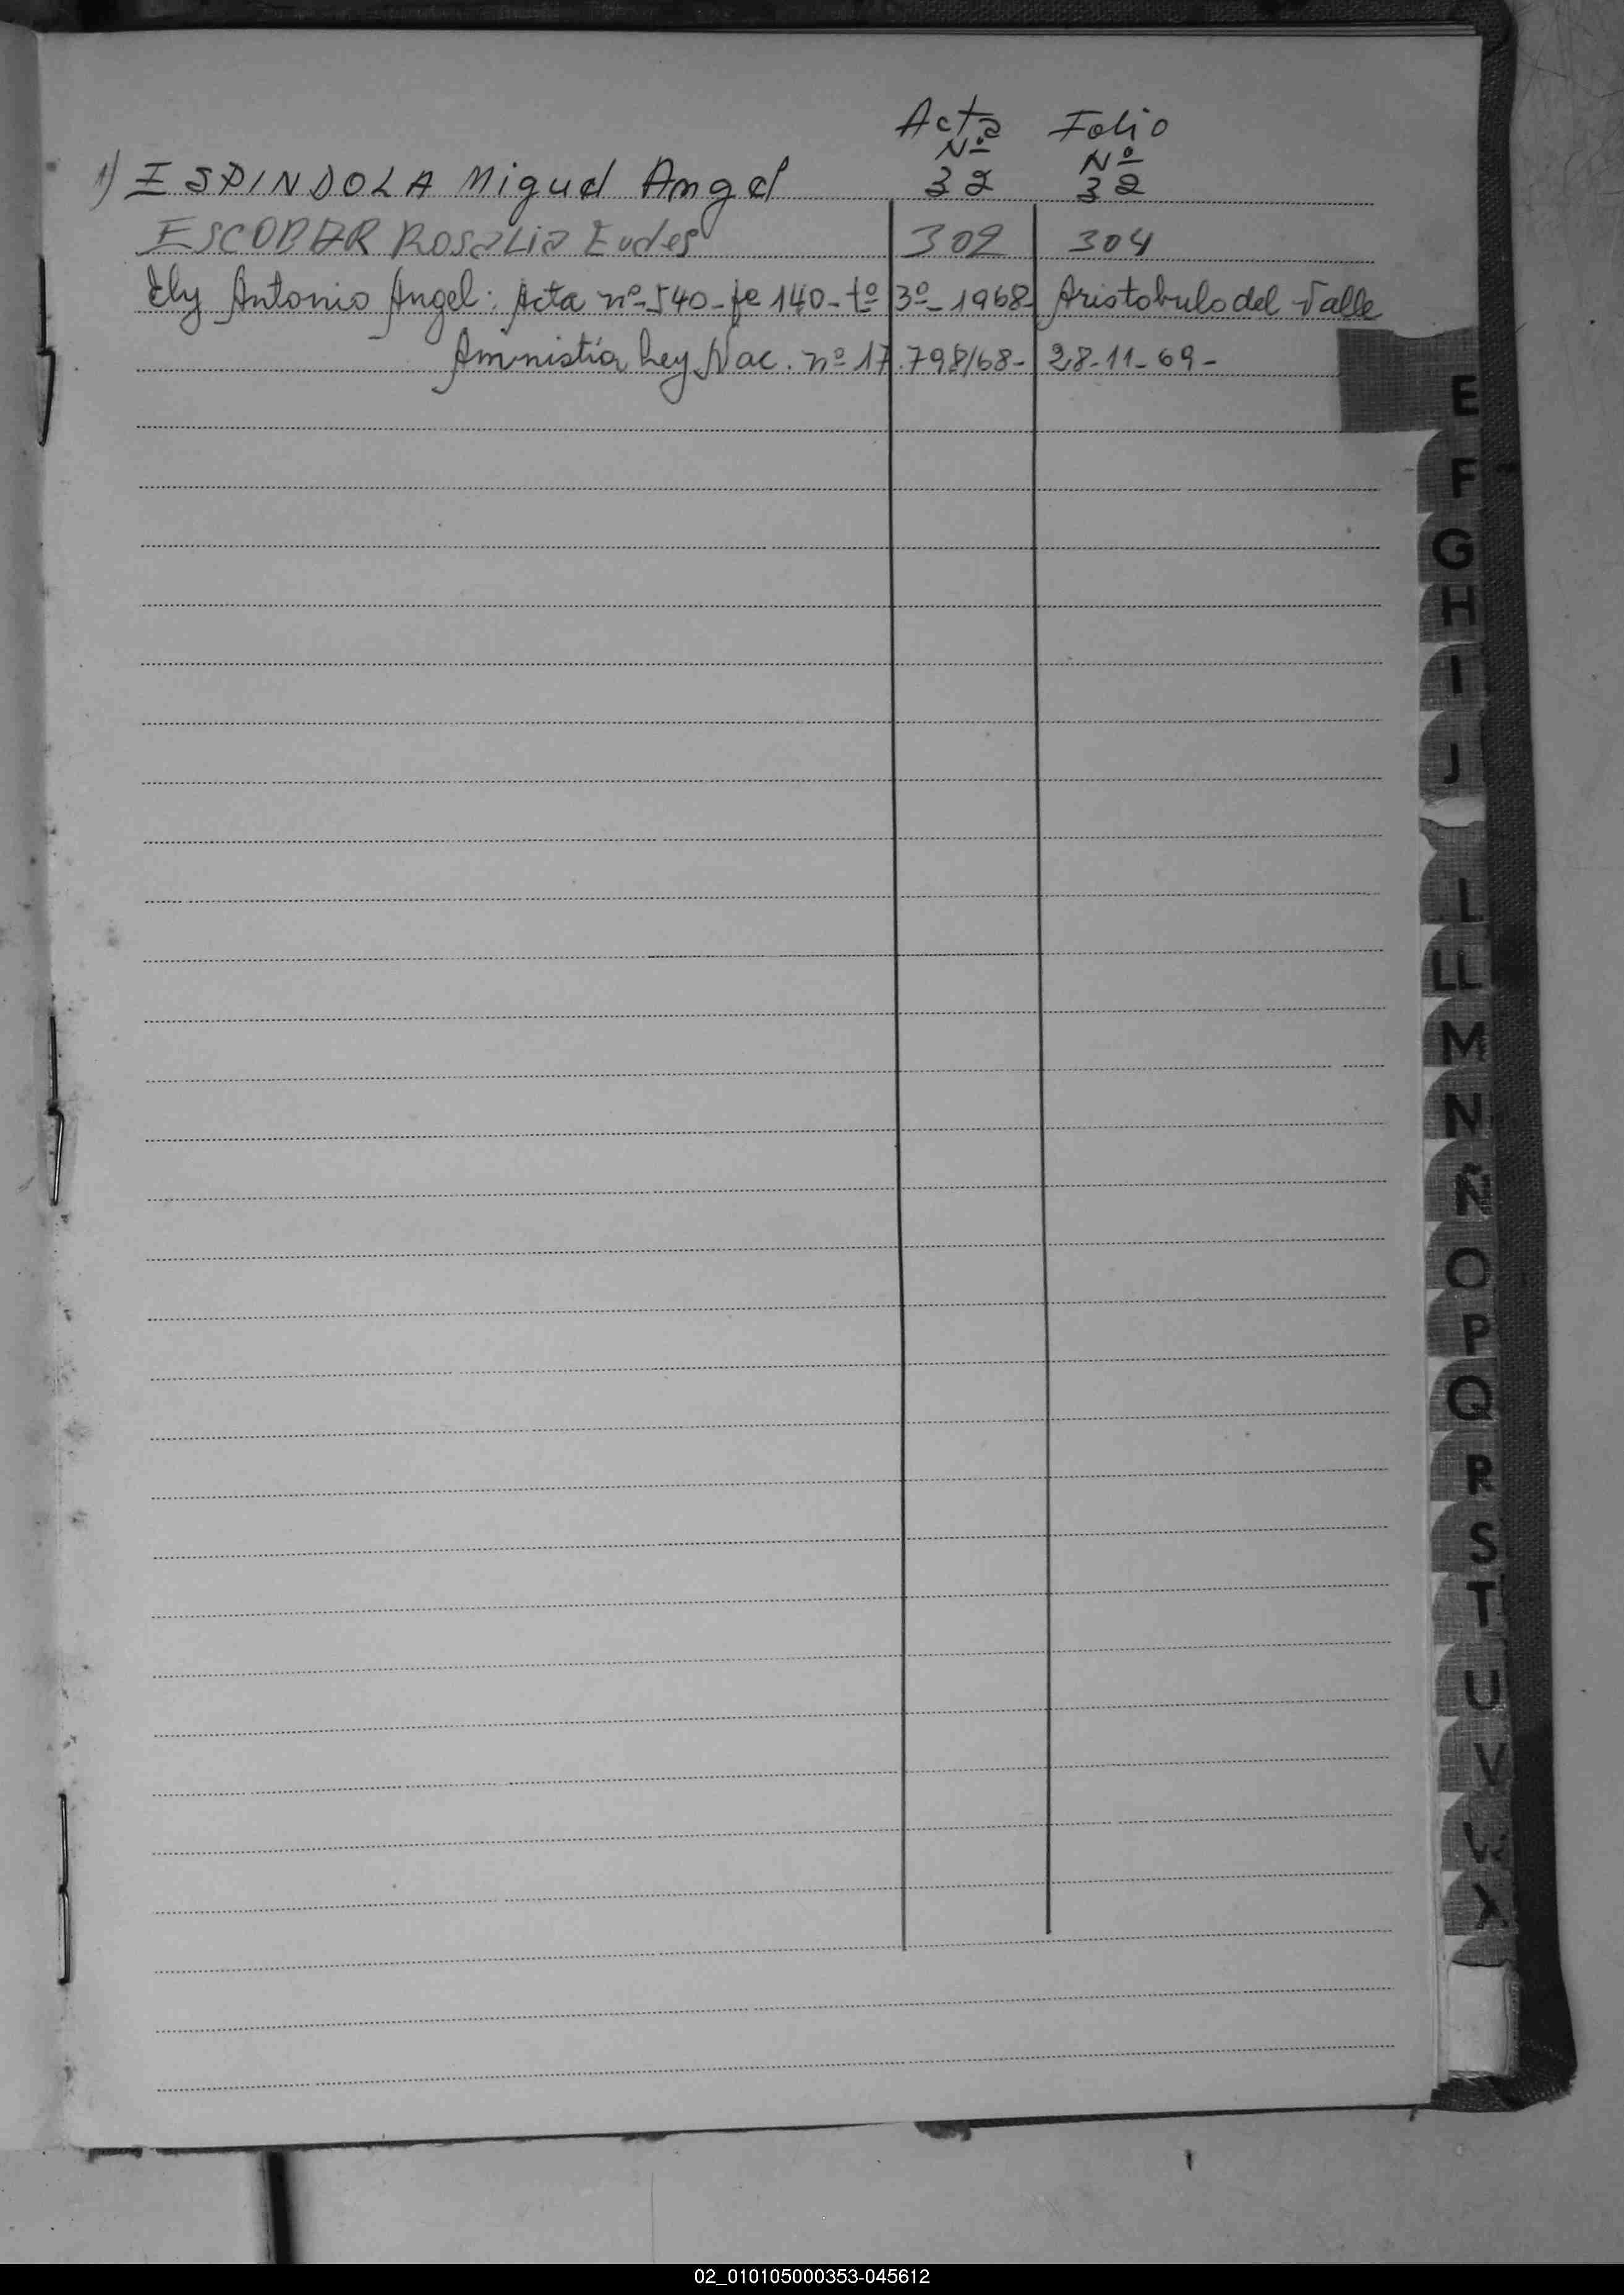 Acta Folio
Nº Nº
1) ESPINDOLA Miguel Angel 32 32
ESCOBAR Rosalia Eudes 302 304
Ely Antonio Angel: Acta nº 540- fº 140- tº 3º- 1968- Aristobulo del Valle
Amnistía Ley Nac. nº 17.798/68- 28-11-69-
E
F
G
H
I
J
L
LL
M
N
Ñ
O
P
Q
R
S
T
U
V
W
X
02_010105000353-045612